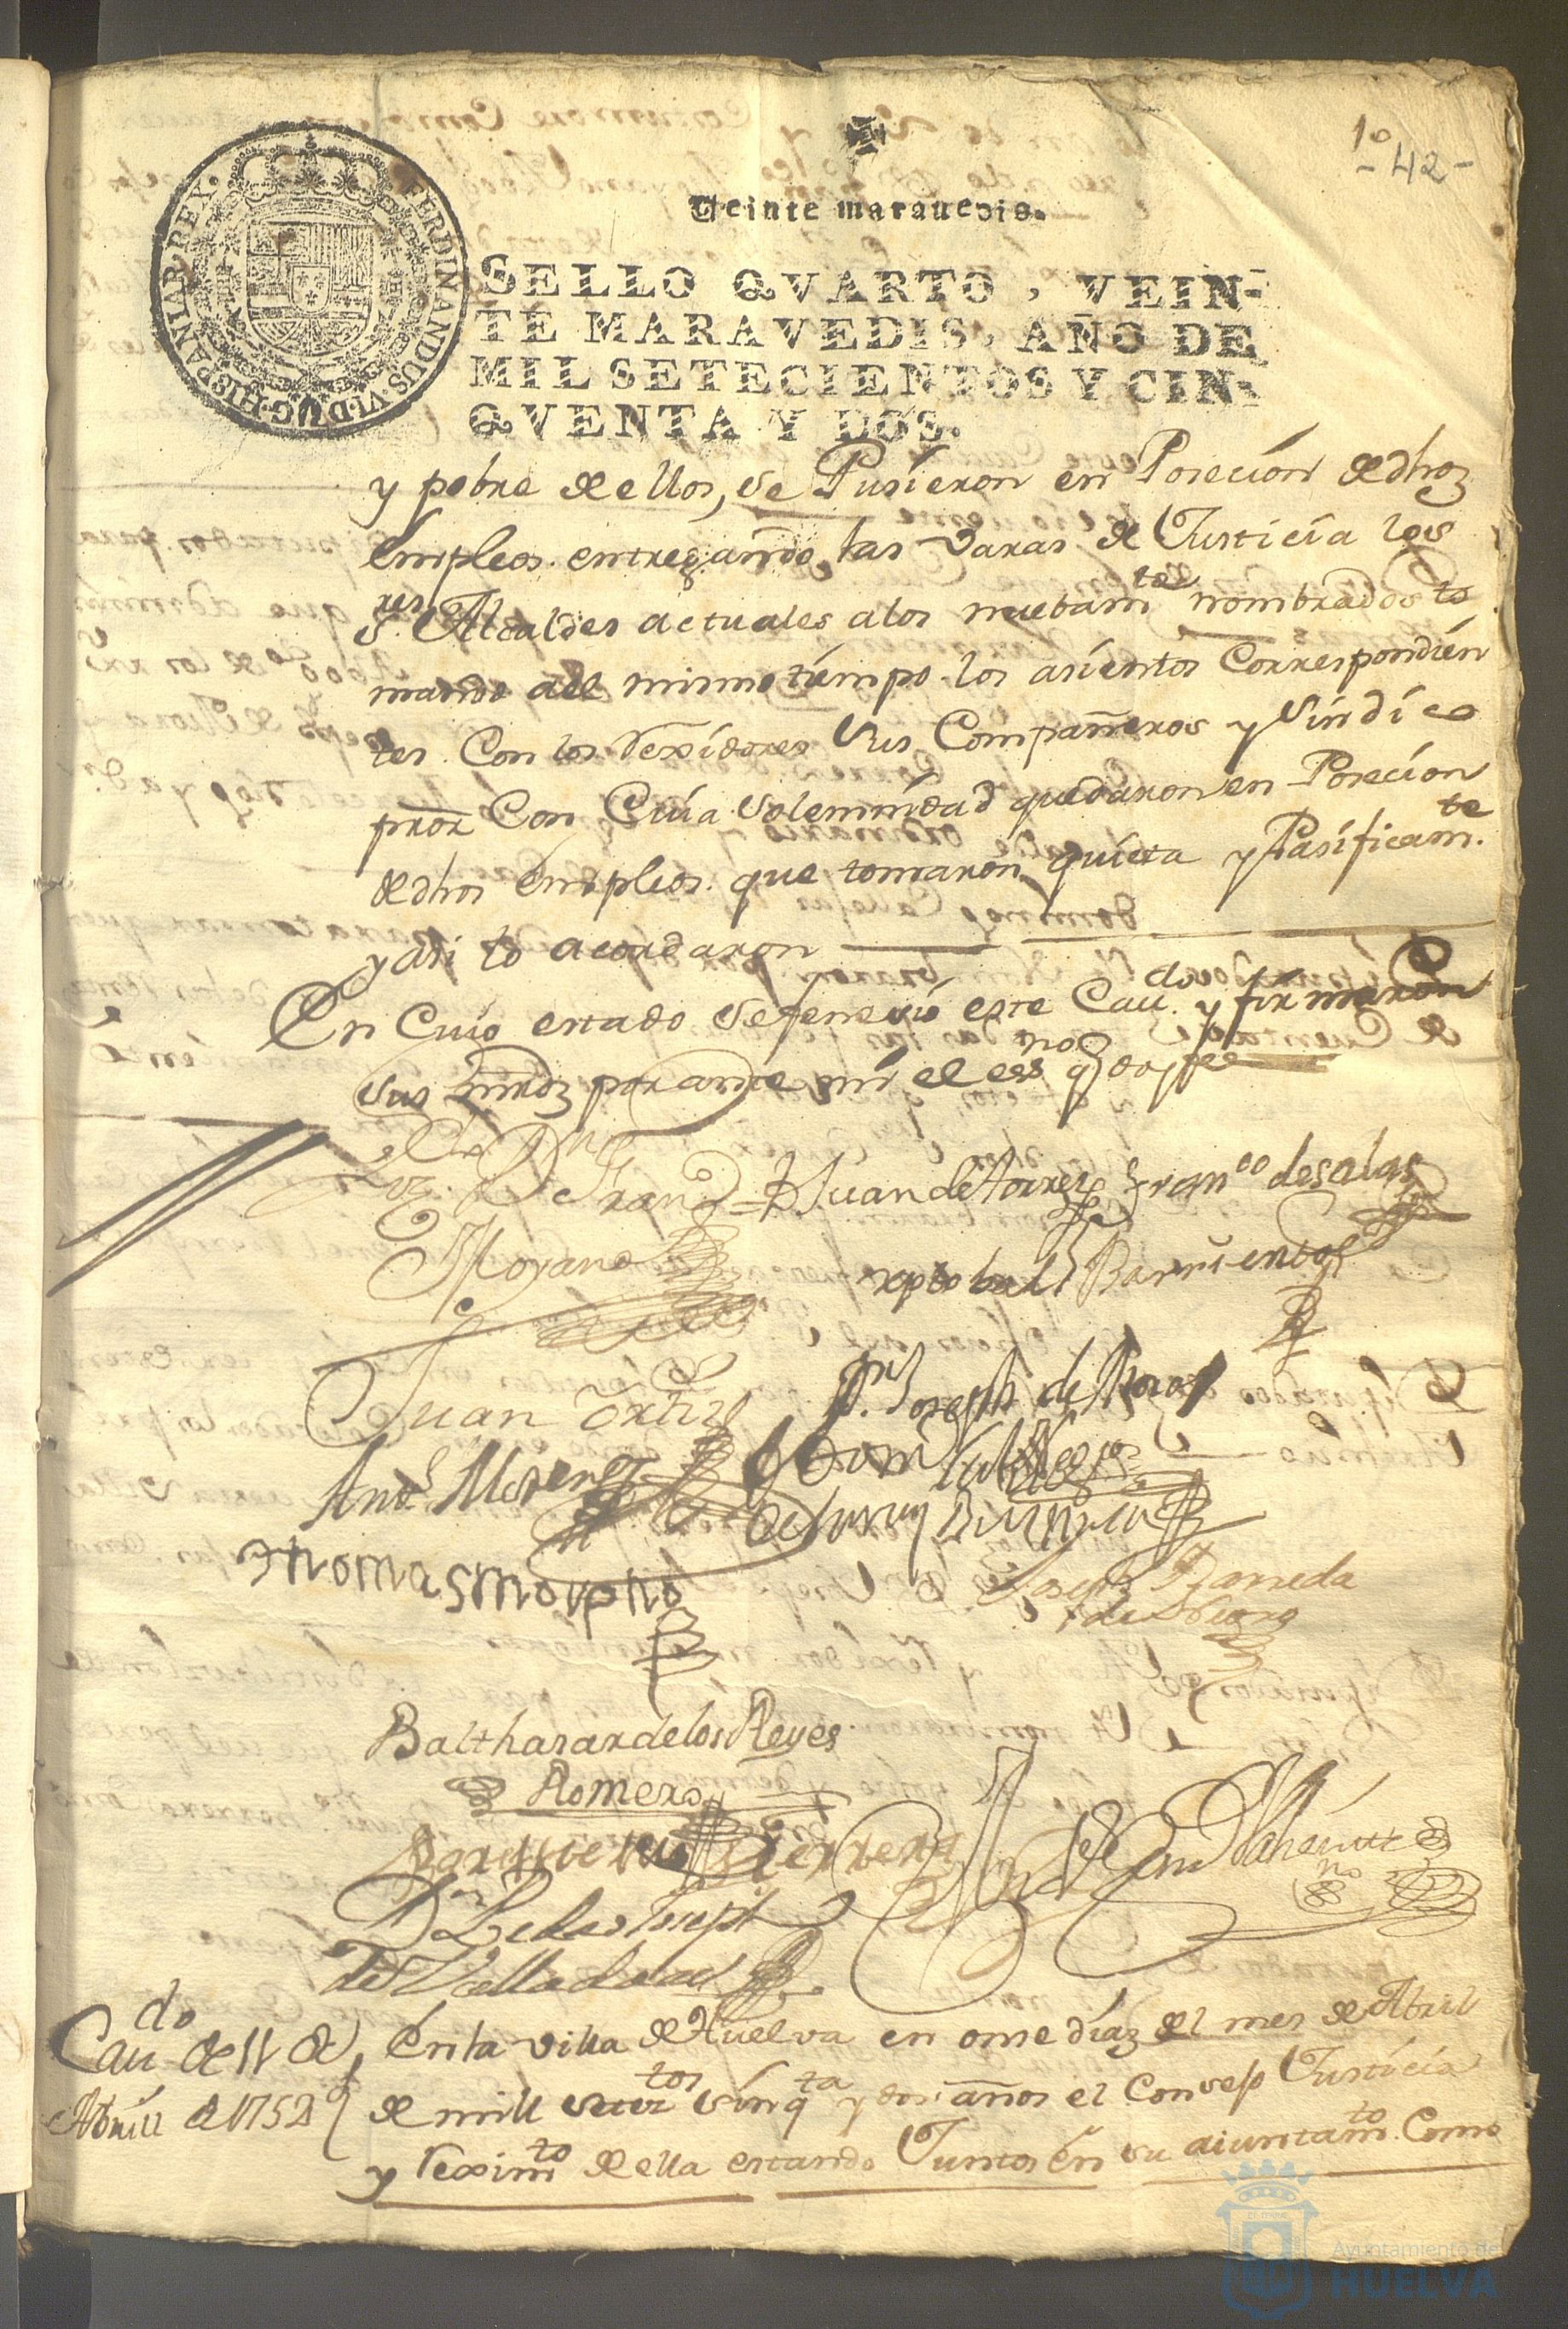 1º
- 42 -
Veinte marauedis.
HISPANIAR. REX. FERDINANDUS. VI. D. G.
SELLO QVARTO, VEIN-
TE MARAVEDIS, AÑO DE
MIL SETECIENTOS Y CIN-
QVENTA Y DOS.
y pobre de ellos, se Pusieron en Posecion de dhoz
Empleos. entregando las Varas de Justicia los
s.res Alcaldes actuales alos nuebam.te nombrados to
mando al mismo tiempo los asientos Correspondien
tes. Con los Rexidores sus Compañeros y Sindico
pror Con Cuia Solemnidad quedaron en Posecion
de dhos Empleos. que tomaron quieta y Pasificam.te
y asi lo acordaron
En Cuio estado Sefenesió este Cau.do y firmaron
sus mrdz por ante mi el ess.no q doy fee
Dn Fran.co
Moyano
Juan de torres
Fran.co de salas
xptobal Barrientos
Juan Ortiz
D.n Joseph de Rioxas
And.s Moreno
thomas moreno
Joseph Raneda
Balthasar de los Reyes
Romero
Dn Lucas Joseph
de Valladares
Cau.do de 11 de
Abrill de 1752
En la villa de Huelva en onse diaz del mes de Abril
de mill setez.tos Sinq.ta y dos años el Consejo Justicia
y Reximto de ella estando Juntos En su aiuntam.to Como
Ayuntamiento de
HUELVA